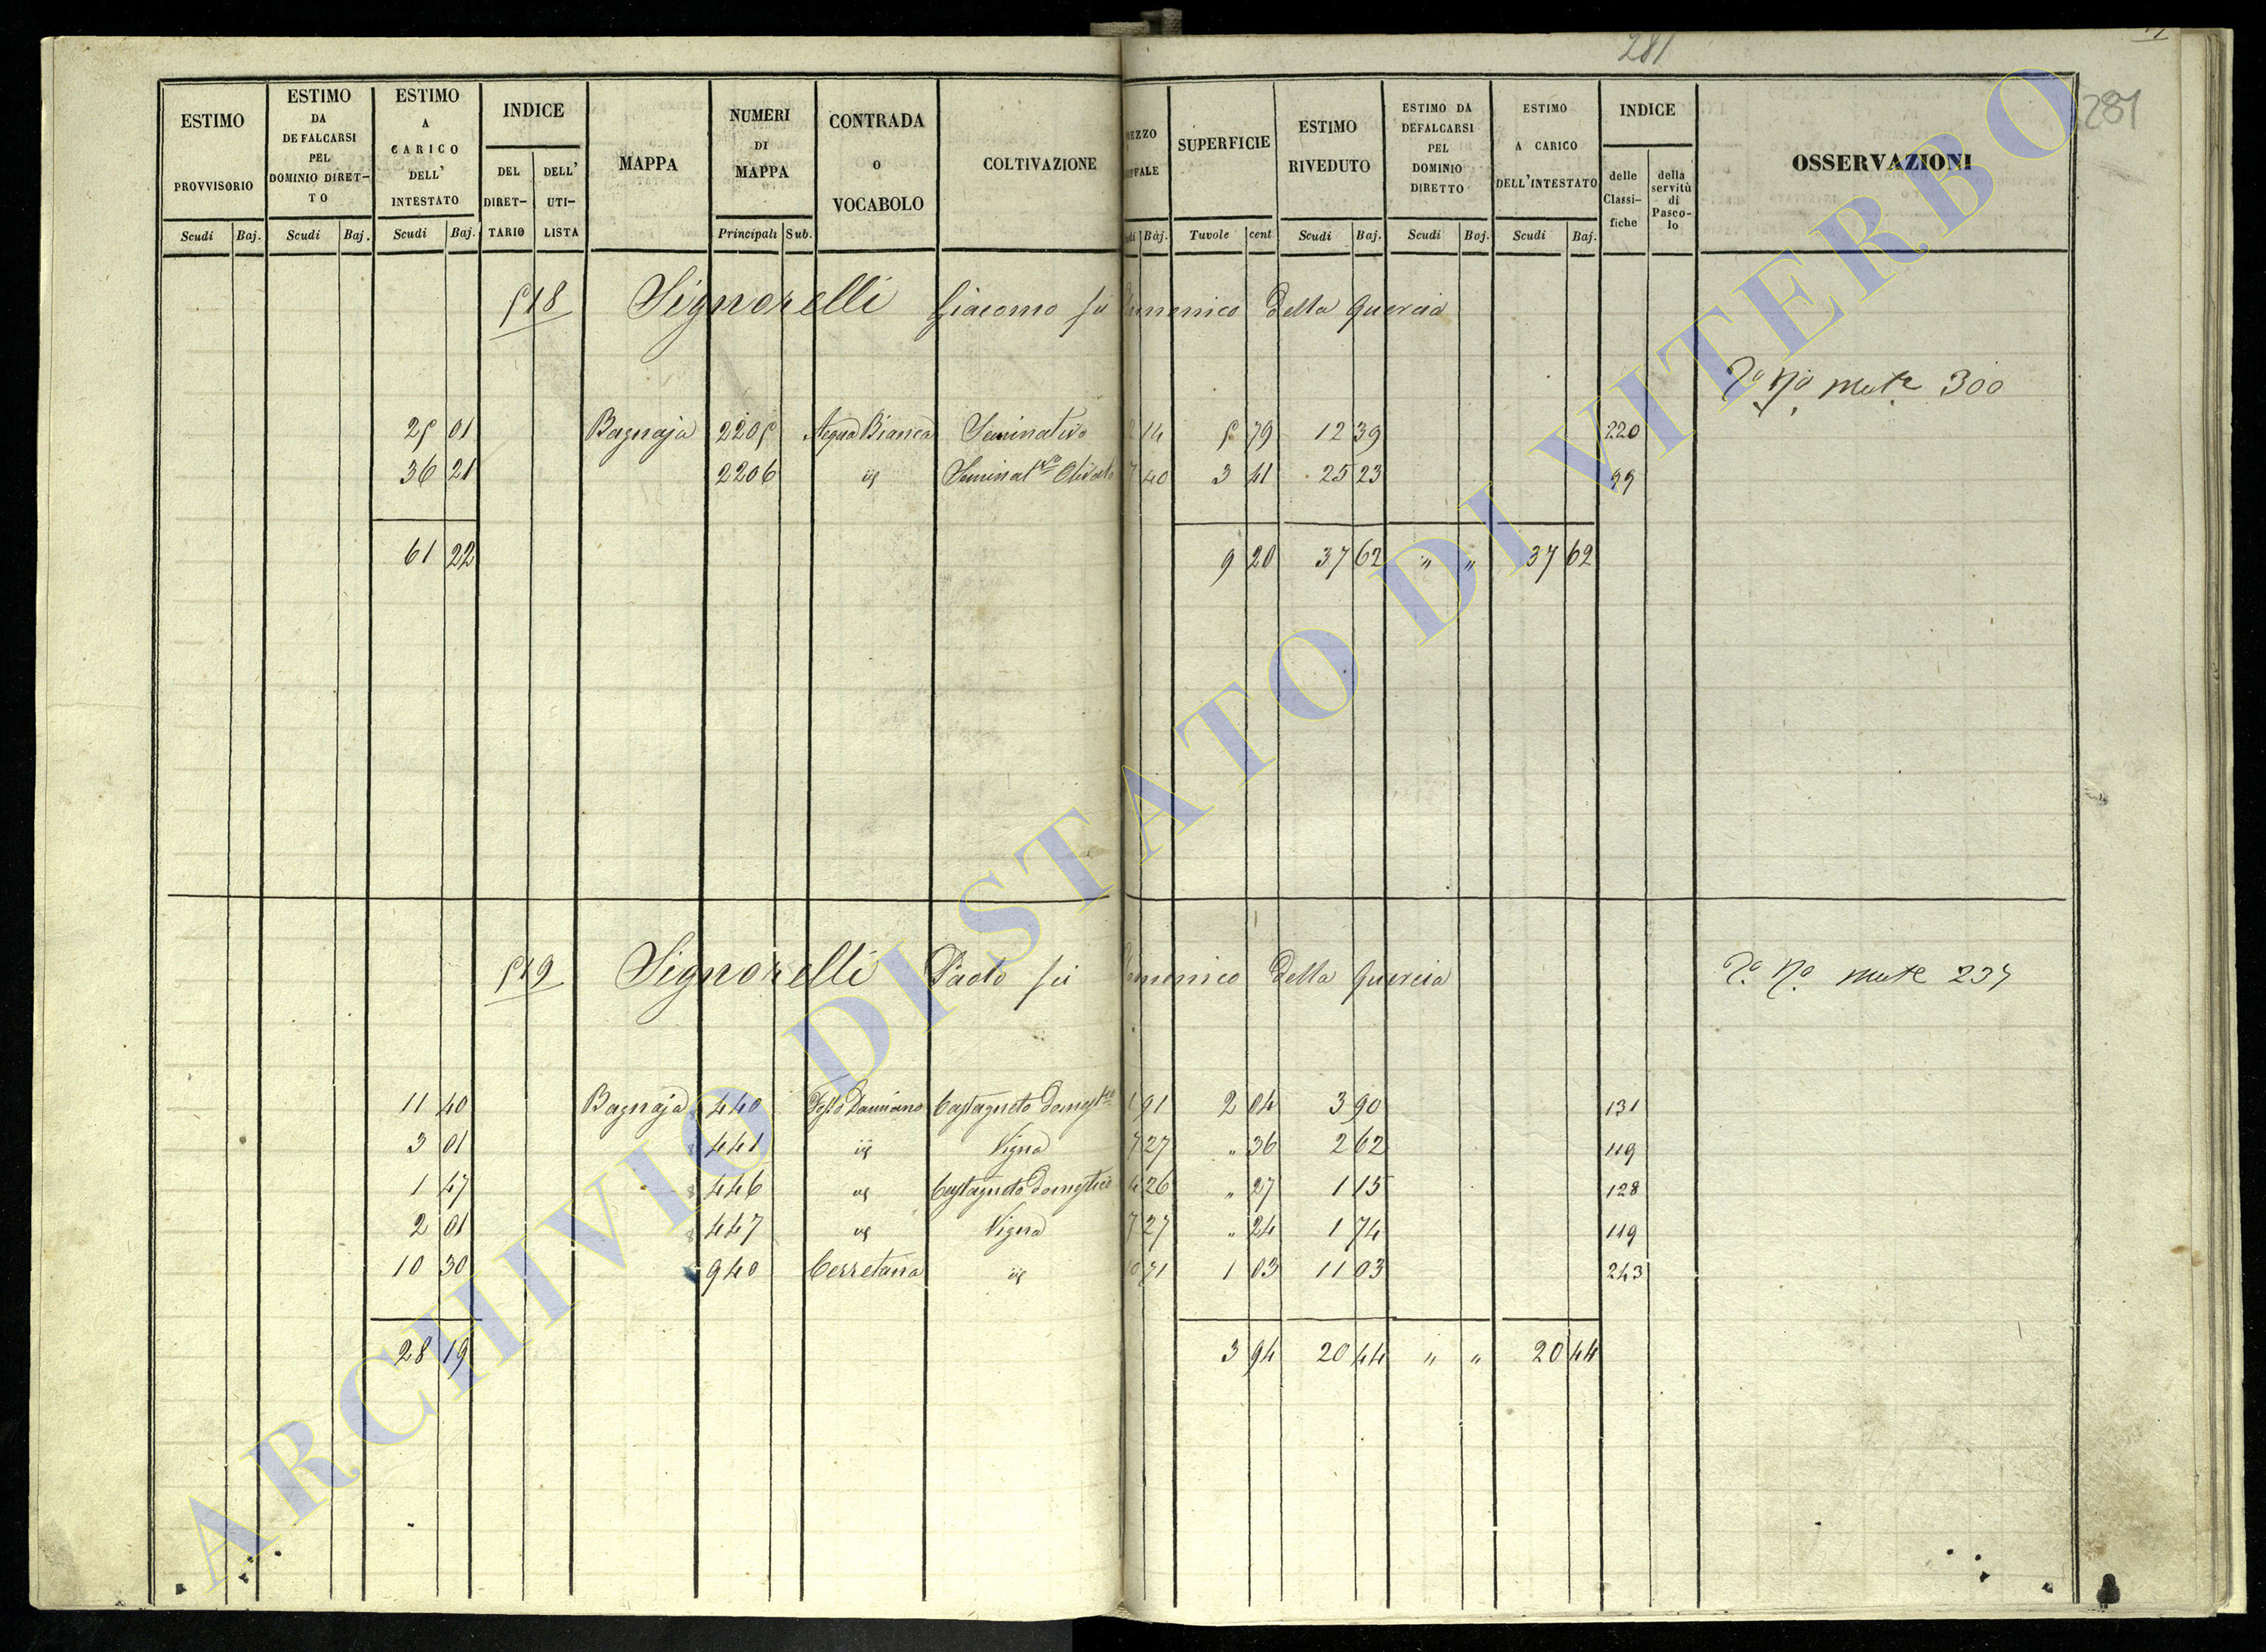 281
281
ESTIMO PROVVISORIO
ESTIMO DA DEFALCARSI PEL DOMINIO DIRET- TO
ESTIMO A CARICO DELL' INTESTATO
INDICE
DEL DIRET- TARIO
DELL' UTI- LISTA
MAPPA
NUMERI DI MAPPA
CONTRADA O VOCABOLO
COLTIVAZIONE
SUPERFICIE
ESTIMO RIVEDUTO
ESTIMO DA DEFALCARSI PEL DOMINIO DIRETTO
ESTIMO A CARICO DELL'INTESTATO
INDICE
delle Classi- fiche
della servitù di Pasco- lo
OSSERVAZIONI
Scudi Baj. Scudi Baj. Scudi Baj. Principali Sub. Baj. Tavole cent Scudi Baj. Scudi Baj. Scudi Baj.
518 Signorelli Giacomo fu Domenico della Quercia
300
25 01 Bagnaja 2205 Acqua Bianca Seminativo 2 14 5 79 12 39 220
36 21 2206 id Seminat.vo Olivato 7 40 3 41 25 23 99
61 22 9 20 37 62 " " 37 62
519 Signorelli Paolo fu Domenico della Quercia 237
11 40 Bagnaja 440 Fosso Damiano Castagneto domest.co 1 91 2 04 3 90 131
3 01 441 id Vigna 7 27 " 36 2 62 119
1 47 446 id Castagneto domestico 4 26 " 27 1 15 128
2 01 447 id Vigna 7 27 " 24 1 74 119
10 30 940 Cerretana id 10 71 1 03 11 03 243
28 19 3 94 20 44 " " 20 44
ARCHIVIO DI STATO DI VITERBO